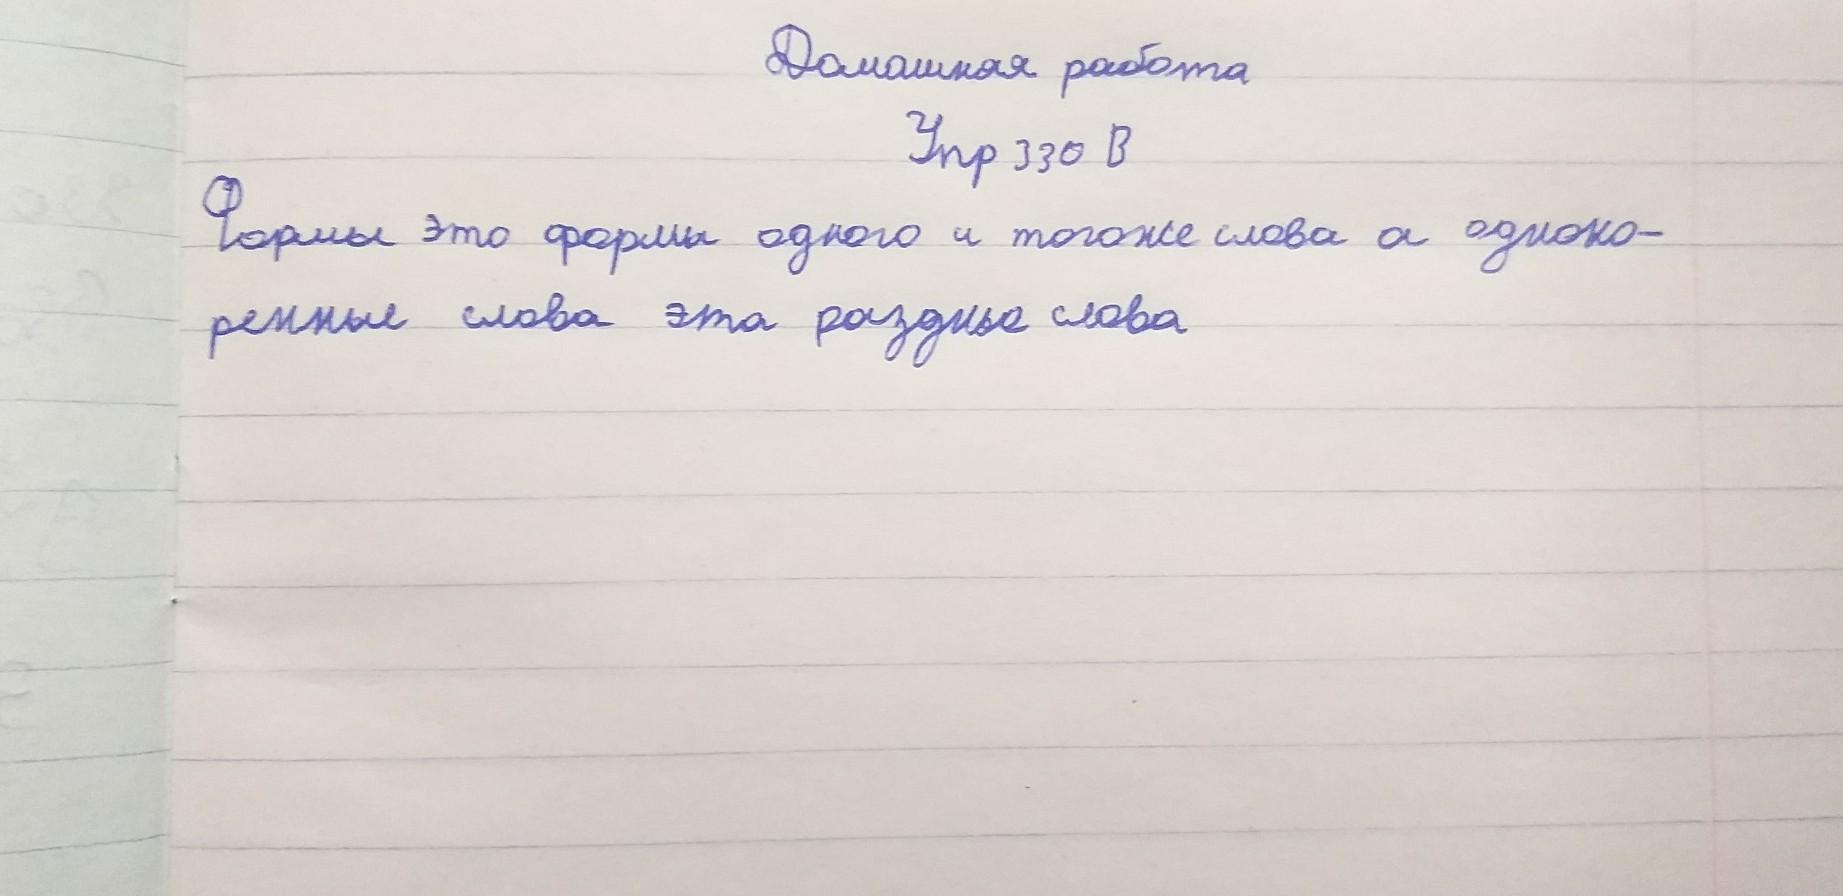 Домашная работа
Упр 330 В
Формы это формы одного и тогоже слова а одноко-
ренные слова эта раздные слова